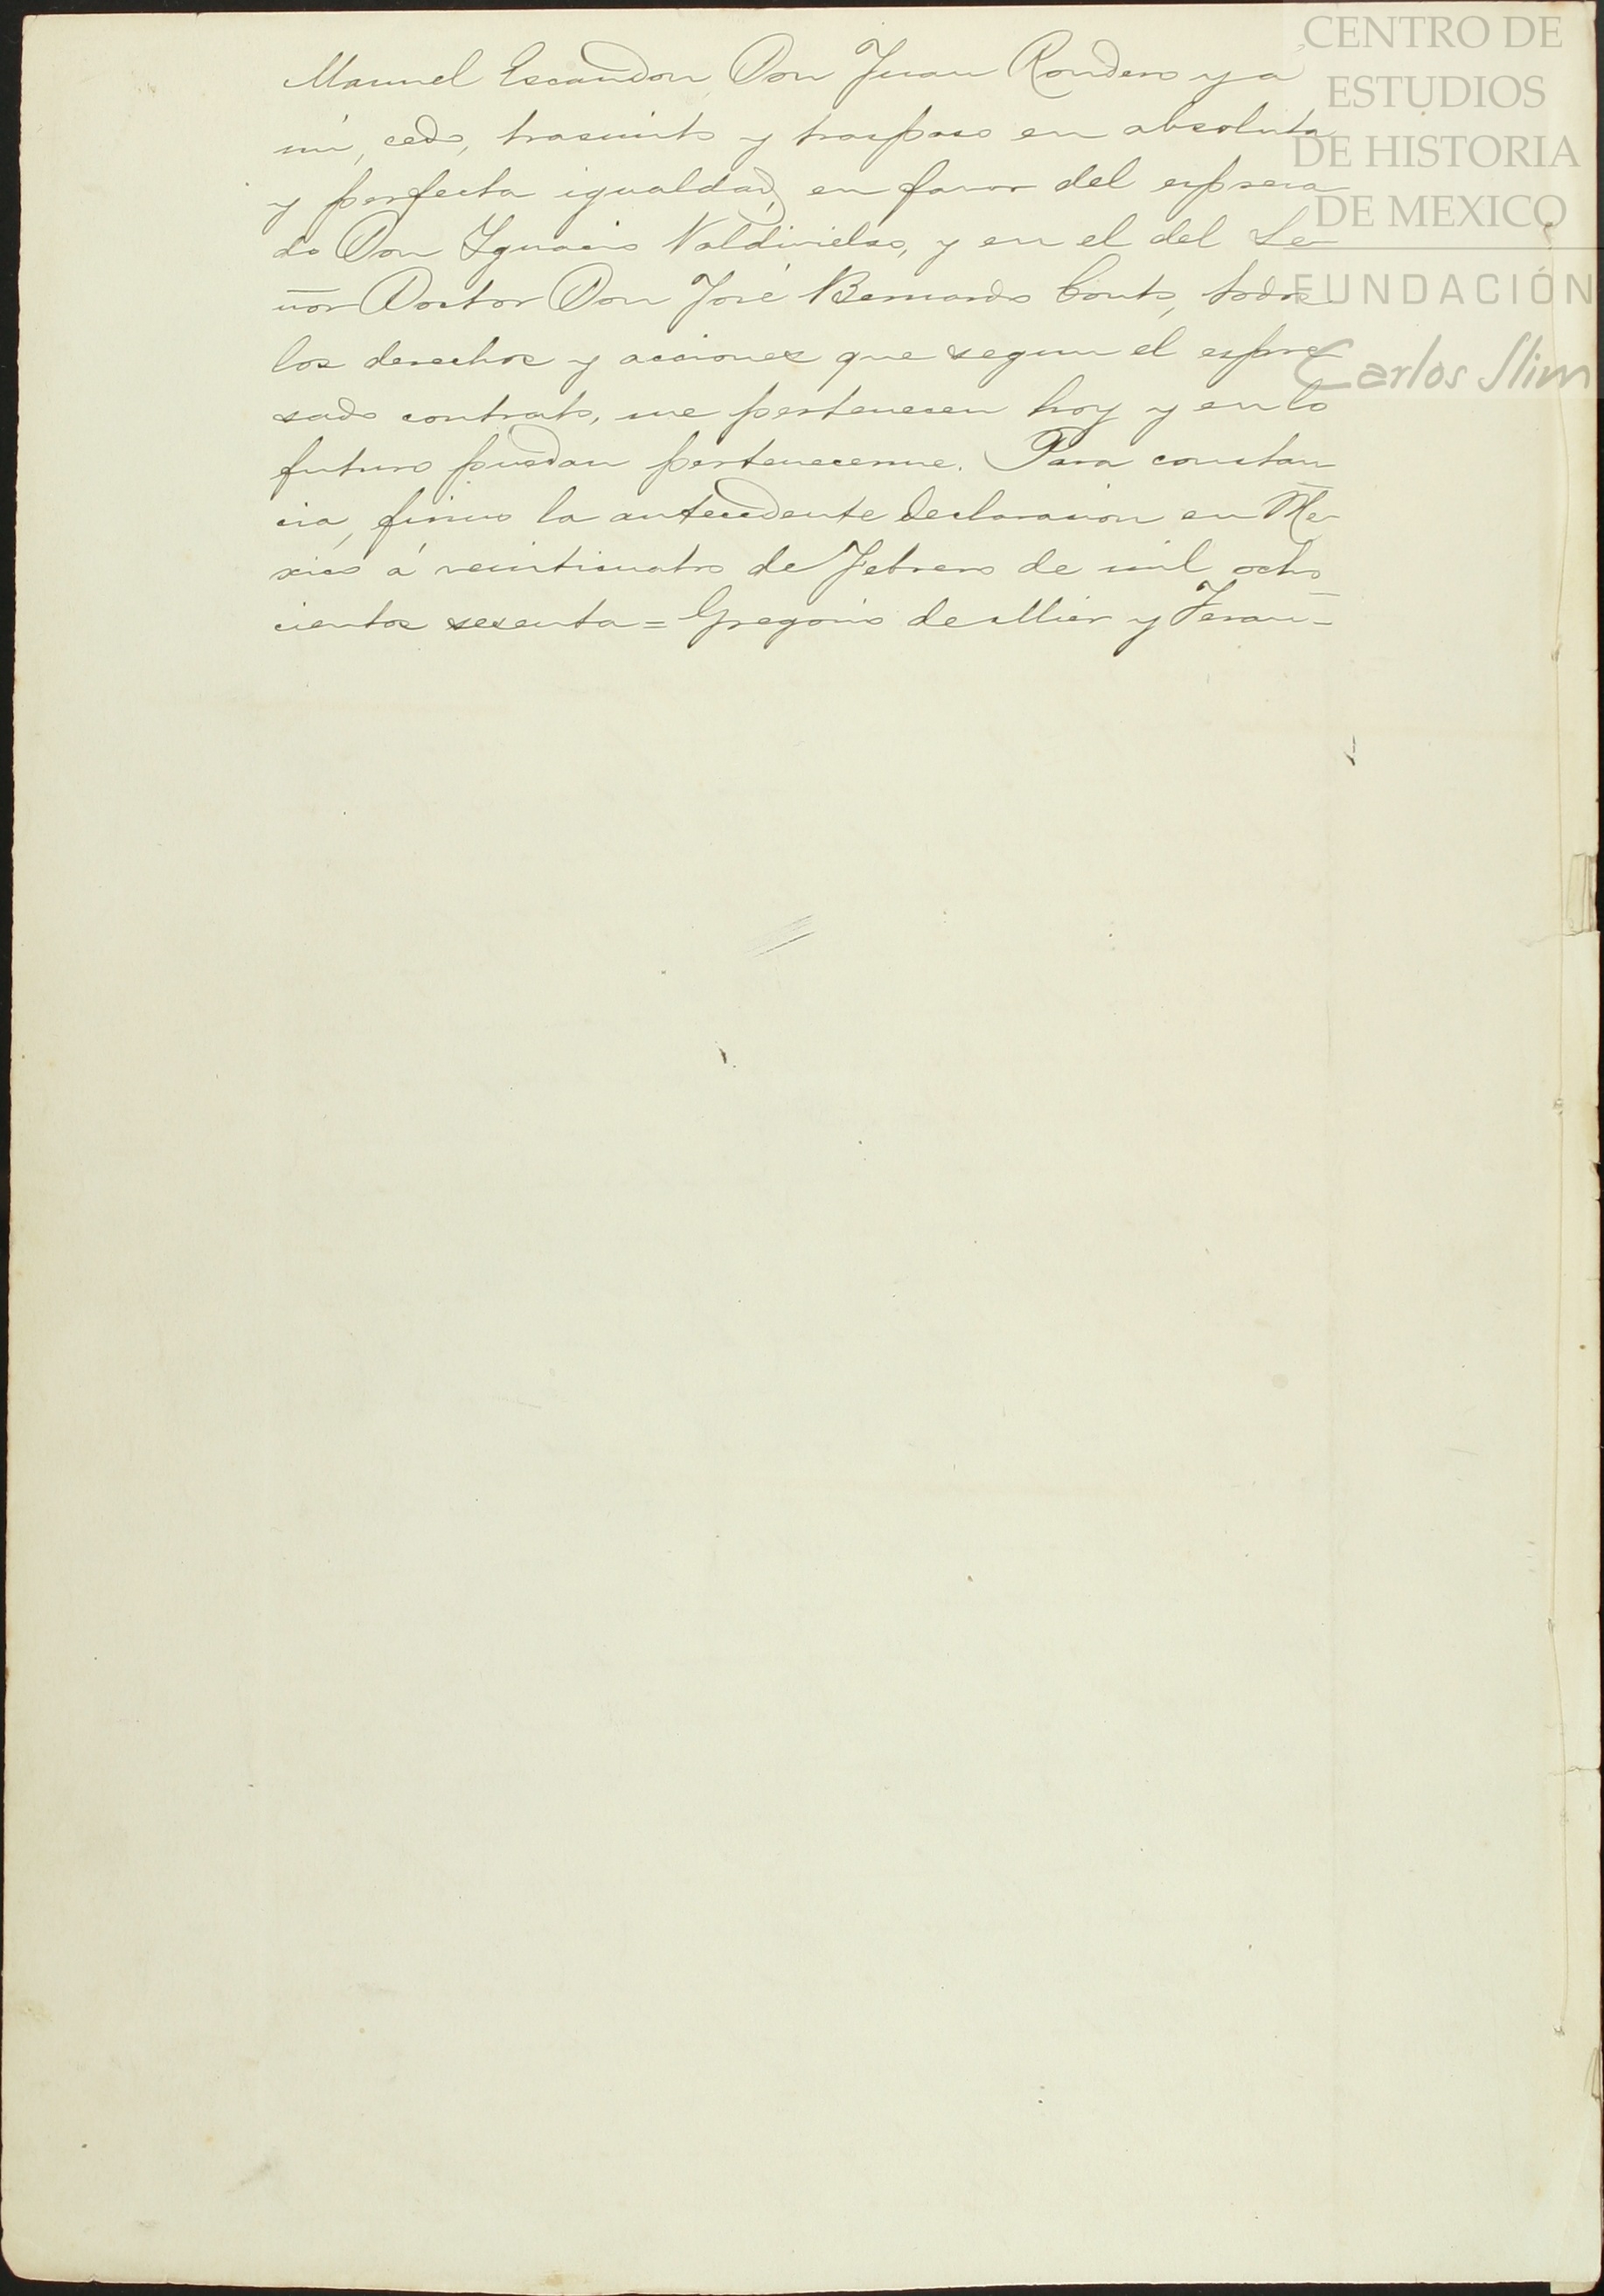 Manuel Escandon, Don Juan Rondero y a
mí, cedo, trasmito y traspaso en absoluta
y perfecta igualdad, en favor del espresa
do Don Ignacio Valdivielso, y en el del Se
ñor Doctor Don José Bernardo Couto, todos
los derechos y acciones que segun el espre
sado contrato, me pertenecen hoy y en lo
futuro puedan pertenecerme. Para constan
cia, firmo la antecedente declaracion en Me-
xico á veinticuatro de Febrero de mil ocho
cientos sesenta = Gregorio de Mier y Teran =
CENTRO DE
ESTUDIOS
DE HISTORIA
DE MEXICO
FUNDACIÓN
Carlos Slim